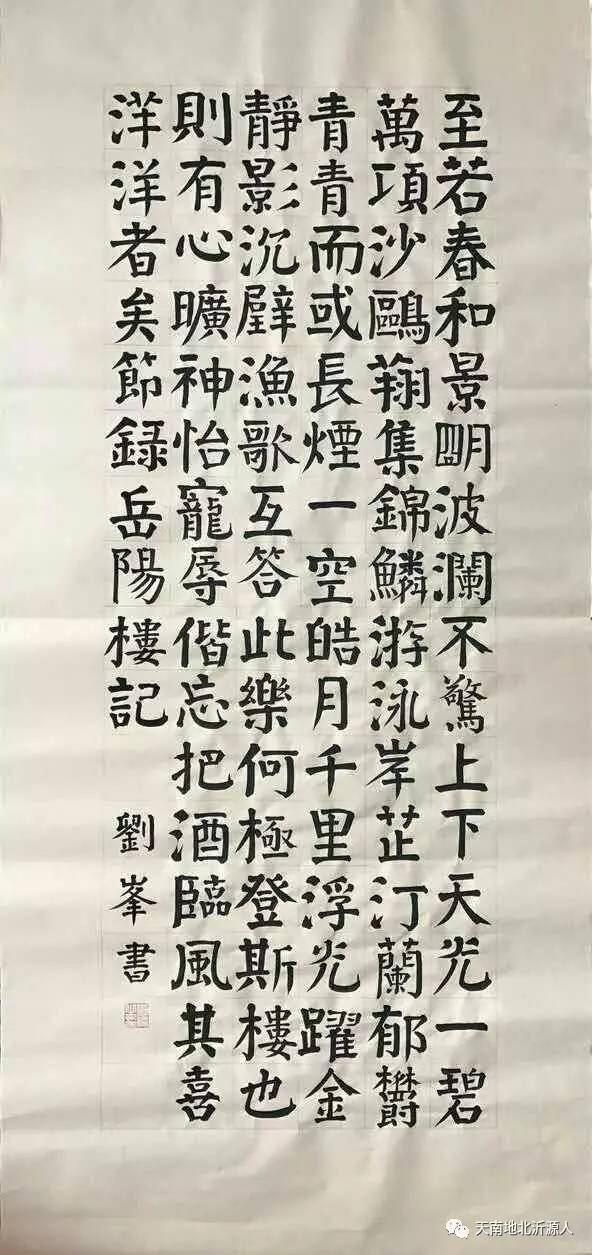 至若春和景朙波瀾不驚上下天光一碧
萬項沙鷗翔集錦鱗游泳岸芷汀蘭郁欝
青青而或長煙一空皓月千里浮光躍金
靜影沉璧漁歌互答此樂何極登斯樓也
則有心曠神怡寵辱偕忘把酒臨風其喜
洋洋者矣節録岳陽樓記
劉峯書
天南地北沂源人